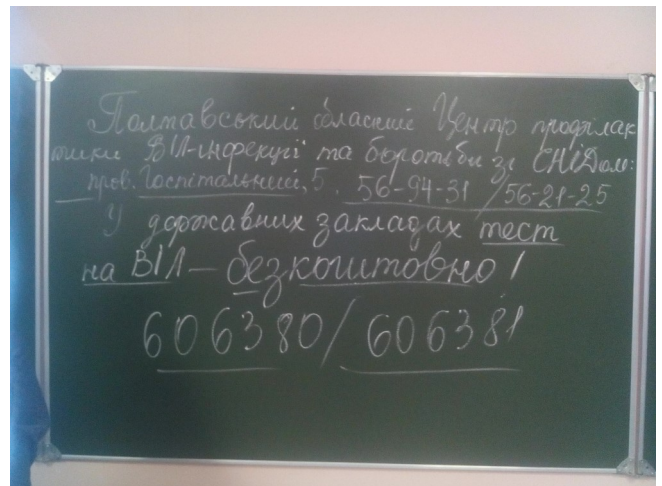 Полтавський обласний Центр профілак
тики ВІЛ-інфекції та боротьби зі СНІДом:
пров. Госпітальний, 5. 56-94-31 / 56-21-25
У державних закладах тест
на ВІЛ – безкоштовно!
606380 / 606381